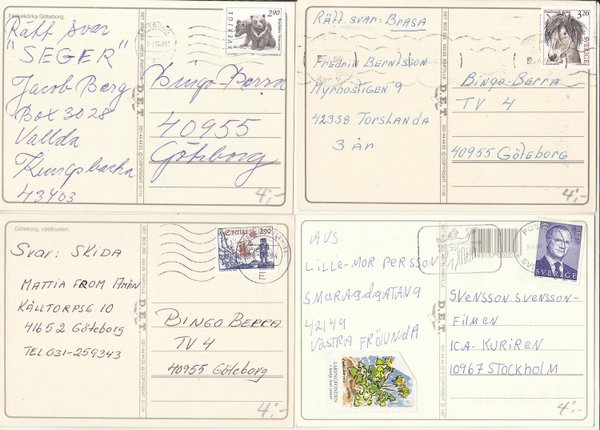 Feskekörka Göteborg.
Rätt svar
"SEGER"
Jacob Berg
Box 3028
Vallda
Kungsbacka
43403
SVERIGE 2.90
Bingo-Berra
40955
Göteborg
4:-
DET
Rätt svar: BRASA
Fredrik Berntsson
Myrbostigen 9
42338 TORSLANDA
3 år
3.20
SVERIGE
Bingo-Berra
TV 4
40955 Göteborg
4:-
DET
Göteborg, västkusten.
Svar: SKIDA
MATTIA FROM
KÄLLTORPSG. 10
41652 Göteborg
TEL 031-259343
2.90
BINGO BERRA
TV 4
40955 Göteborg
4:-
DET
AVS
LILLE-MOR PERSSON
SMARAGDGATAN 9
42149
VÄSTRA FRÖLUNDA
SVERIGE
SVENSSON SVENSSON-
FILMEN
ICA-KURIREN
10967 STOCKHOLM
4:-
DET